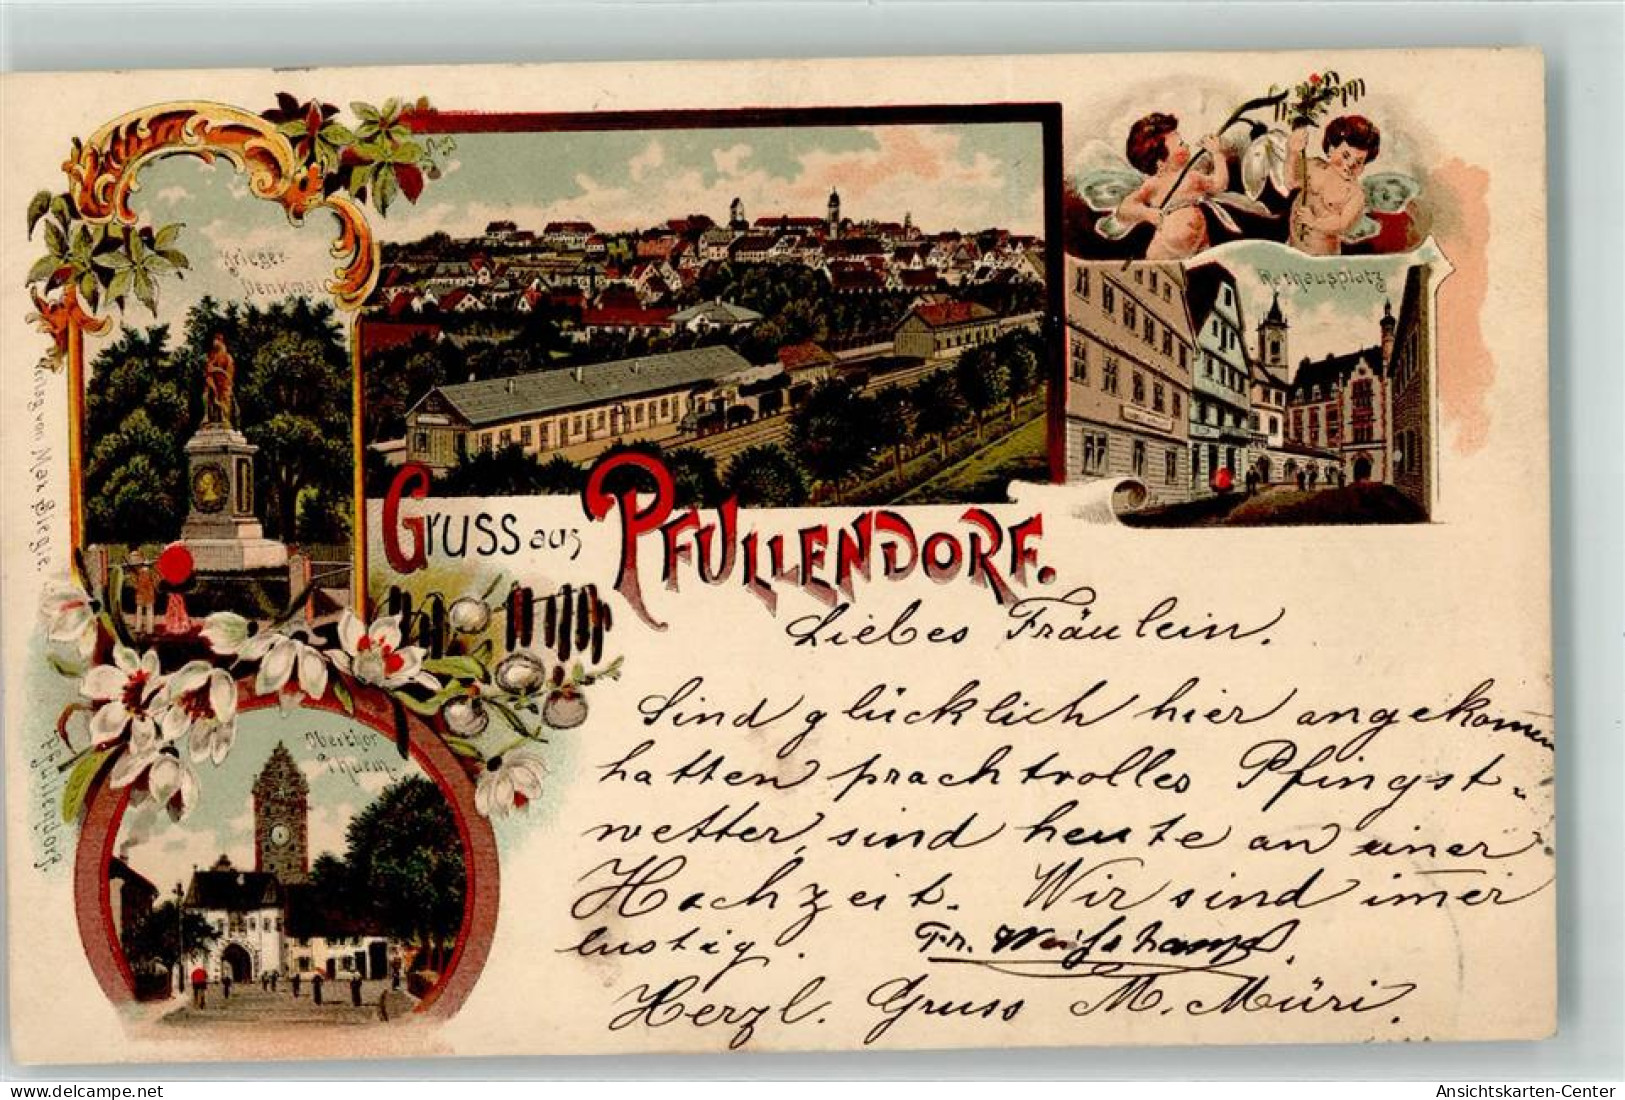 Krieger-
Denkmal
Rathausplatz
Verlag von Max Siegle.
Pfullendorf.
Gruss aus PFULLENDORF.
Oberthor
Thurm.
Liebes Fräulein.
Sind glücklich hier angekomm̄en
hatten prachtvolles Pfingst-
wetter, sind heute an einer
Hochzeit. Wir sind im̄er
lustig. Fr. Weishaupt.
Herzl. Gruss M. Müri.
Ansichtskarten-Center